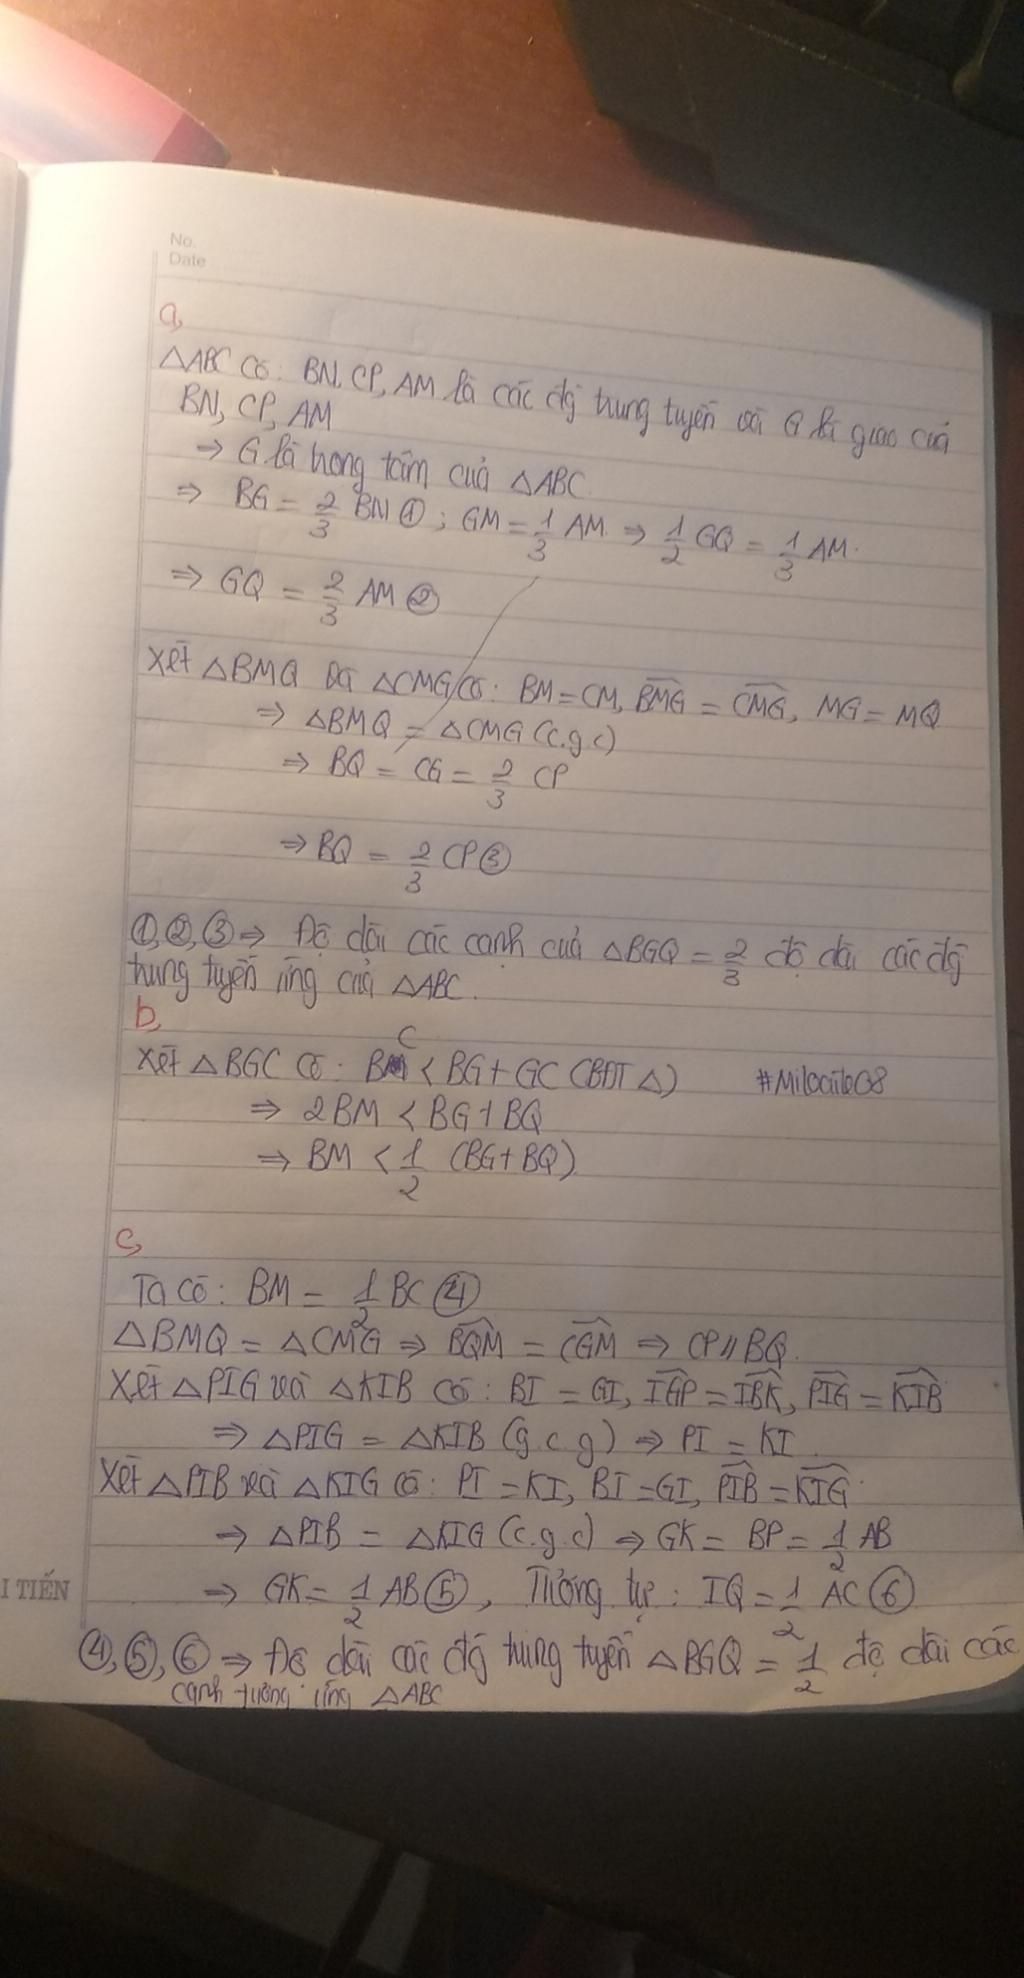 No.
Date
a,
△ABC có: BN, CP, AM là các đg trung tuyến và G là giao của
BN, CP, AM
⇒ G là trọng tâm của △ABC.
⇒ BG = 2/3 BN ①; GM = 1/3 AM ⇒ 1/2 GQ = 1/3 AM.
⇒ GQ = 2/3 AM ②
Xét △BMQ và △CMG có: BM = CM, \widehat{BMG} = \widehat{CMG}, MG = MQ
⇒ △BMQ = △CMG (c.g.c)
⇒ BQ = CG = 2/3 CP
⇒ BQ = 2/3 CP ③
①, ②, ③ ⇒ Độ dài các cạnh của △BGQ = 2/3 độ dài các đg
trung tuyến ứng của △ABC.
b,
Xét △BGC có: BC < BG + GC (BĐT △) #Milocailo08
⇒ 2BM < BG + BQ
⇒ BM < 1/2 (BG + BQ)
c,
Ta có: BM = 1/2 BC ④
△BMQ = △CMG ⇒ \widehat{BQM} = \widehat{CGM} ⇒ CP // BQ.
Xét △PIG và △KIB có: BI = GI, \widehat{IGP} = \widehat{IBK}, \widehat{PIG} = \widehat{KIB}
⇒ △PIG = △KIB (g.c.g) ⇒ PI = KI.
Xét △PIB và △KIG có: PI = KI, BI = GI, \widehat{PIB} = \widehat{KIG}
⇒ △PIB = △KIG (c.g.c) ⇒ GK = BP = 1/2 AB
I TIẾN
⇒ GK = 1/2 AB ⑤, Tương tự: IQ = 1/2 AC ⑥
④, ⑤, ⑥ ⇒ Độ dài các đg trung tuyến △BGQ = 1/2 độ dài các
cạnh tương ứng △ABC